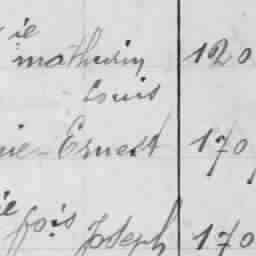 ie
mathurin 120
Louis
ie - Ernest 170
ie
fois Joseph 170